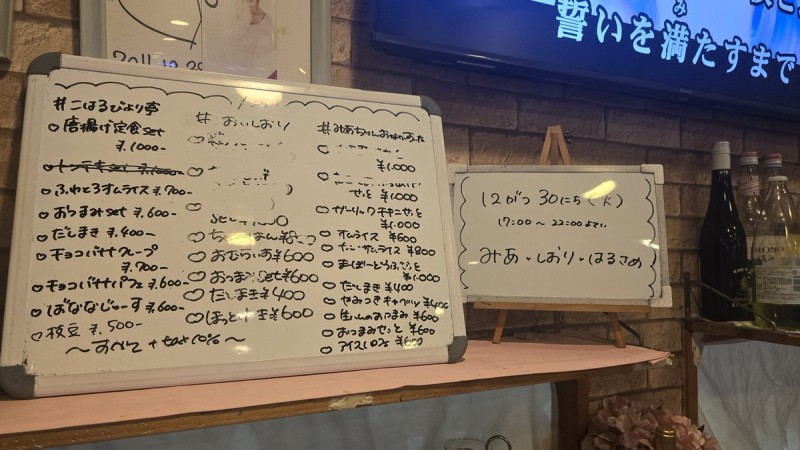 2011.12.29
誓いを満たすまで
み
#こはるびより亭
♡唐揚げ定食set
¥.1000-
♡ふわとろオムライス ¥.700-
♡おつまみset ¥.600-
♡だしまき ¥.400-
♡チョコバナナクレープ
¥.700-
♡チョコバナナパフェ ¥.600-
♡ばななじゅーす ¥.600-
♡枝豆 ¥.500-
〜すべて + tax10%〜
# おいしおり
♡おむらいす¥600
♡おつまみset¥600
♡だしまき¥400
¥600
#みあちゃんおなかすいた
¥1.000
せっと ¥1.000
♡ガーリックチキンせっと
¥1.000
♡オムライス ¥600
¥800
¥1.000
♡だしまき ¥400
♡やみつきキャベツ ¥400
♡生ハムのおつまみ ¥600
♡おつまみせっと ¥600
♡アイスパフェ ¥600
12がつ 30にち(火)
17:00 〜 22:00まで
みあ・しおり・はるさめ